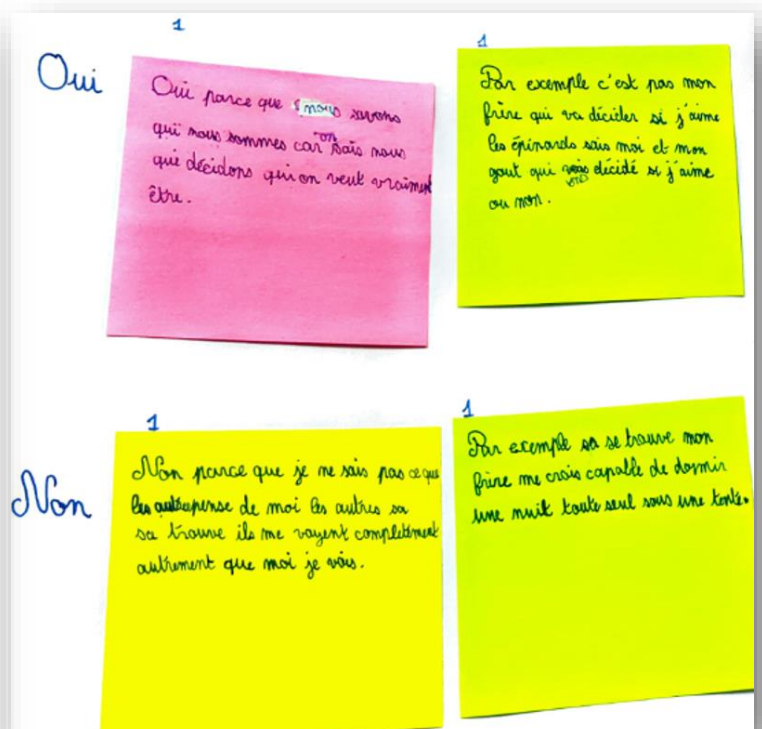 1
1
Oui
Oui parce que nous savons
qui nous sommes car sais nous
on
qui décidons qui on veut vraiment
être.
Par exemple c'est pas mon
frère qui va décider si j'aime
les épinards sais moi et mon
gout qui vons décidé si j'aime
ou non.
1
1
Non
Non parce que je ne sais pas ce que
les autre pense de moi les autres sa
se trouve ils me voyent complètement
autrement que moi je vois.
Par exemple sa se trouve mon
frère me crois capable de dormir
une nuit toute seul sous une tente.